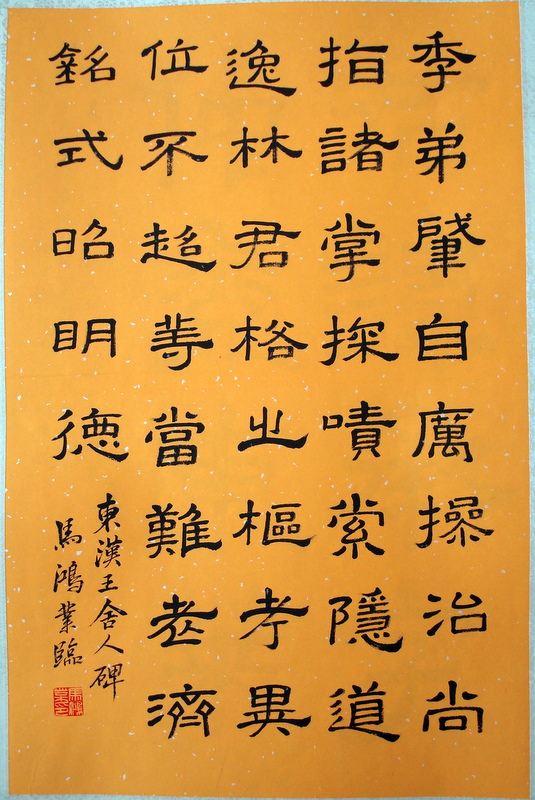 季弟肇自厲操治尚
指諸掌探嘖索隱道
逸林君格之樞考異
位不超等當難老濟
銘式昭明德
東漢王舍人碑
馬鴻業臨